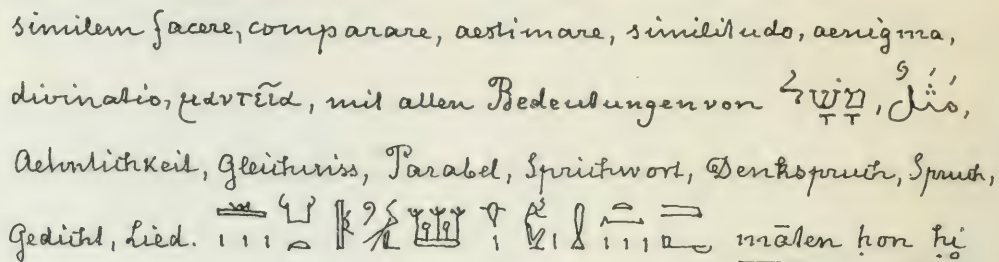 similem facere, comparare, aestimare, similitudo, aenigma,
divinatio, μαντεῖα, mit allen Bedeutungen von מָשָׁל, مَثَلٌ,
Aehnlichkeit, Gleichniss, Parabel, Sprichwort, Denkspruch, Spruch,
Gedicht, Lied. māten ḥon ḥi